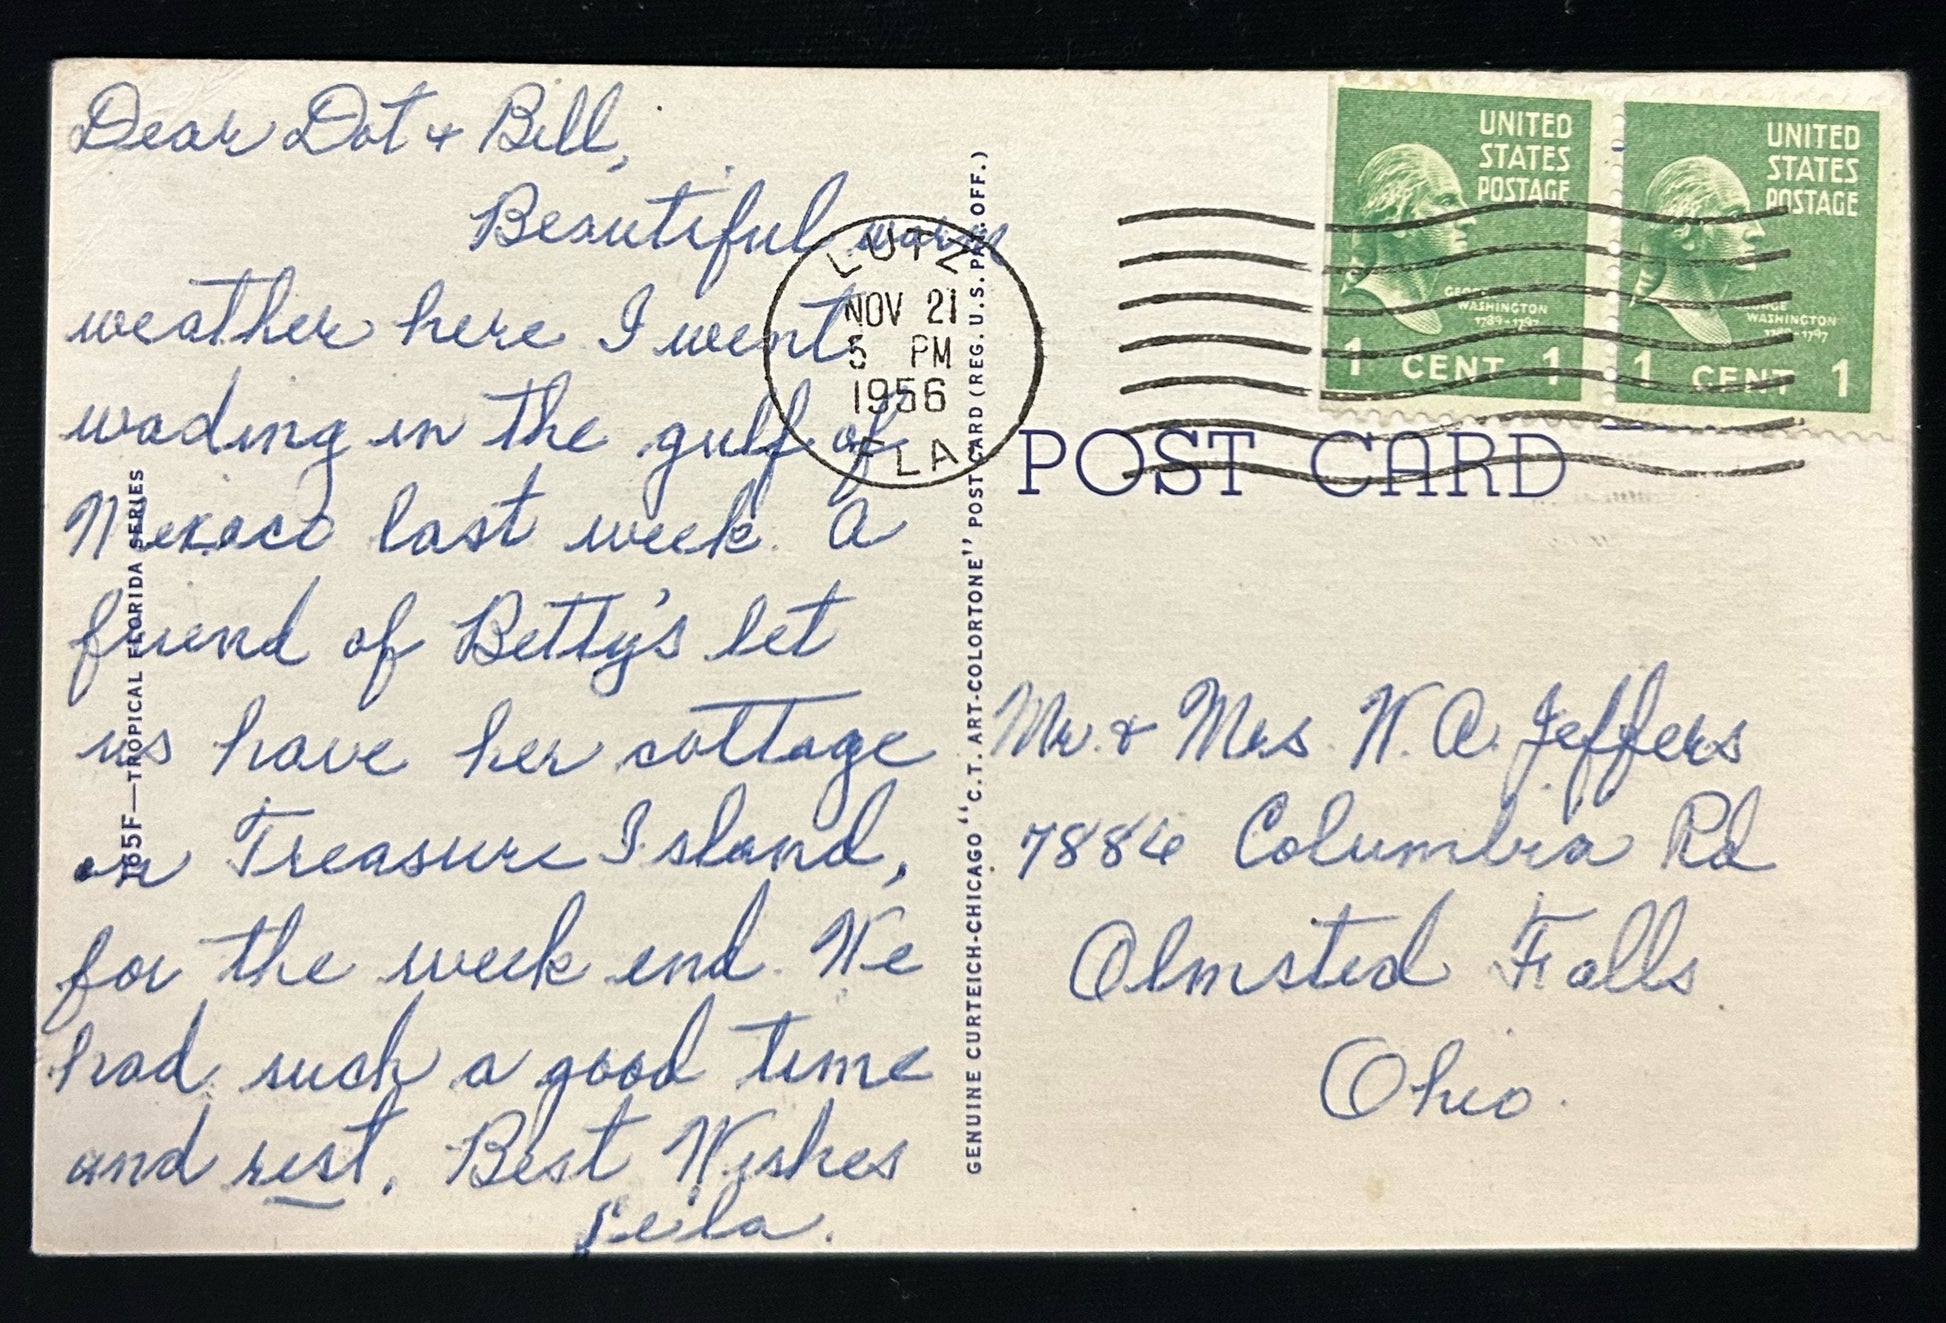 Dear Dot & Bill,
Beautiful warm
weather here I went
wading in the gulf of
Mexico last week. A
friend of Betty's let
us have her cottage
on Treasure Island,
for the week end. We
had such a good time
and rest. Best Wishes
Leila.
65F—TROPICAL FLORIDA SERIES
GENUINE CURTEICH-CHICAGO "C.T. ART-COLORTONE" POST CARD (REG. U.S. PAT. OFF.)
LUTZ
NOV 21
5 PM
1956
FLA
UNITED
STATES
POSTAGE
GEORGE
WASHINGTON
1789-1797
1 CENT 1
UNITED
STATES
POSTAGE
GEORGE
WASHINGTON
1789-1797
1 CENT 1
POST CARD
Mr. & Mrs. W. A. Jeffers
7886 Columbia Rd
Olmsted Falls
Ohio.